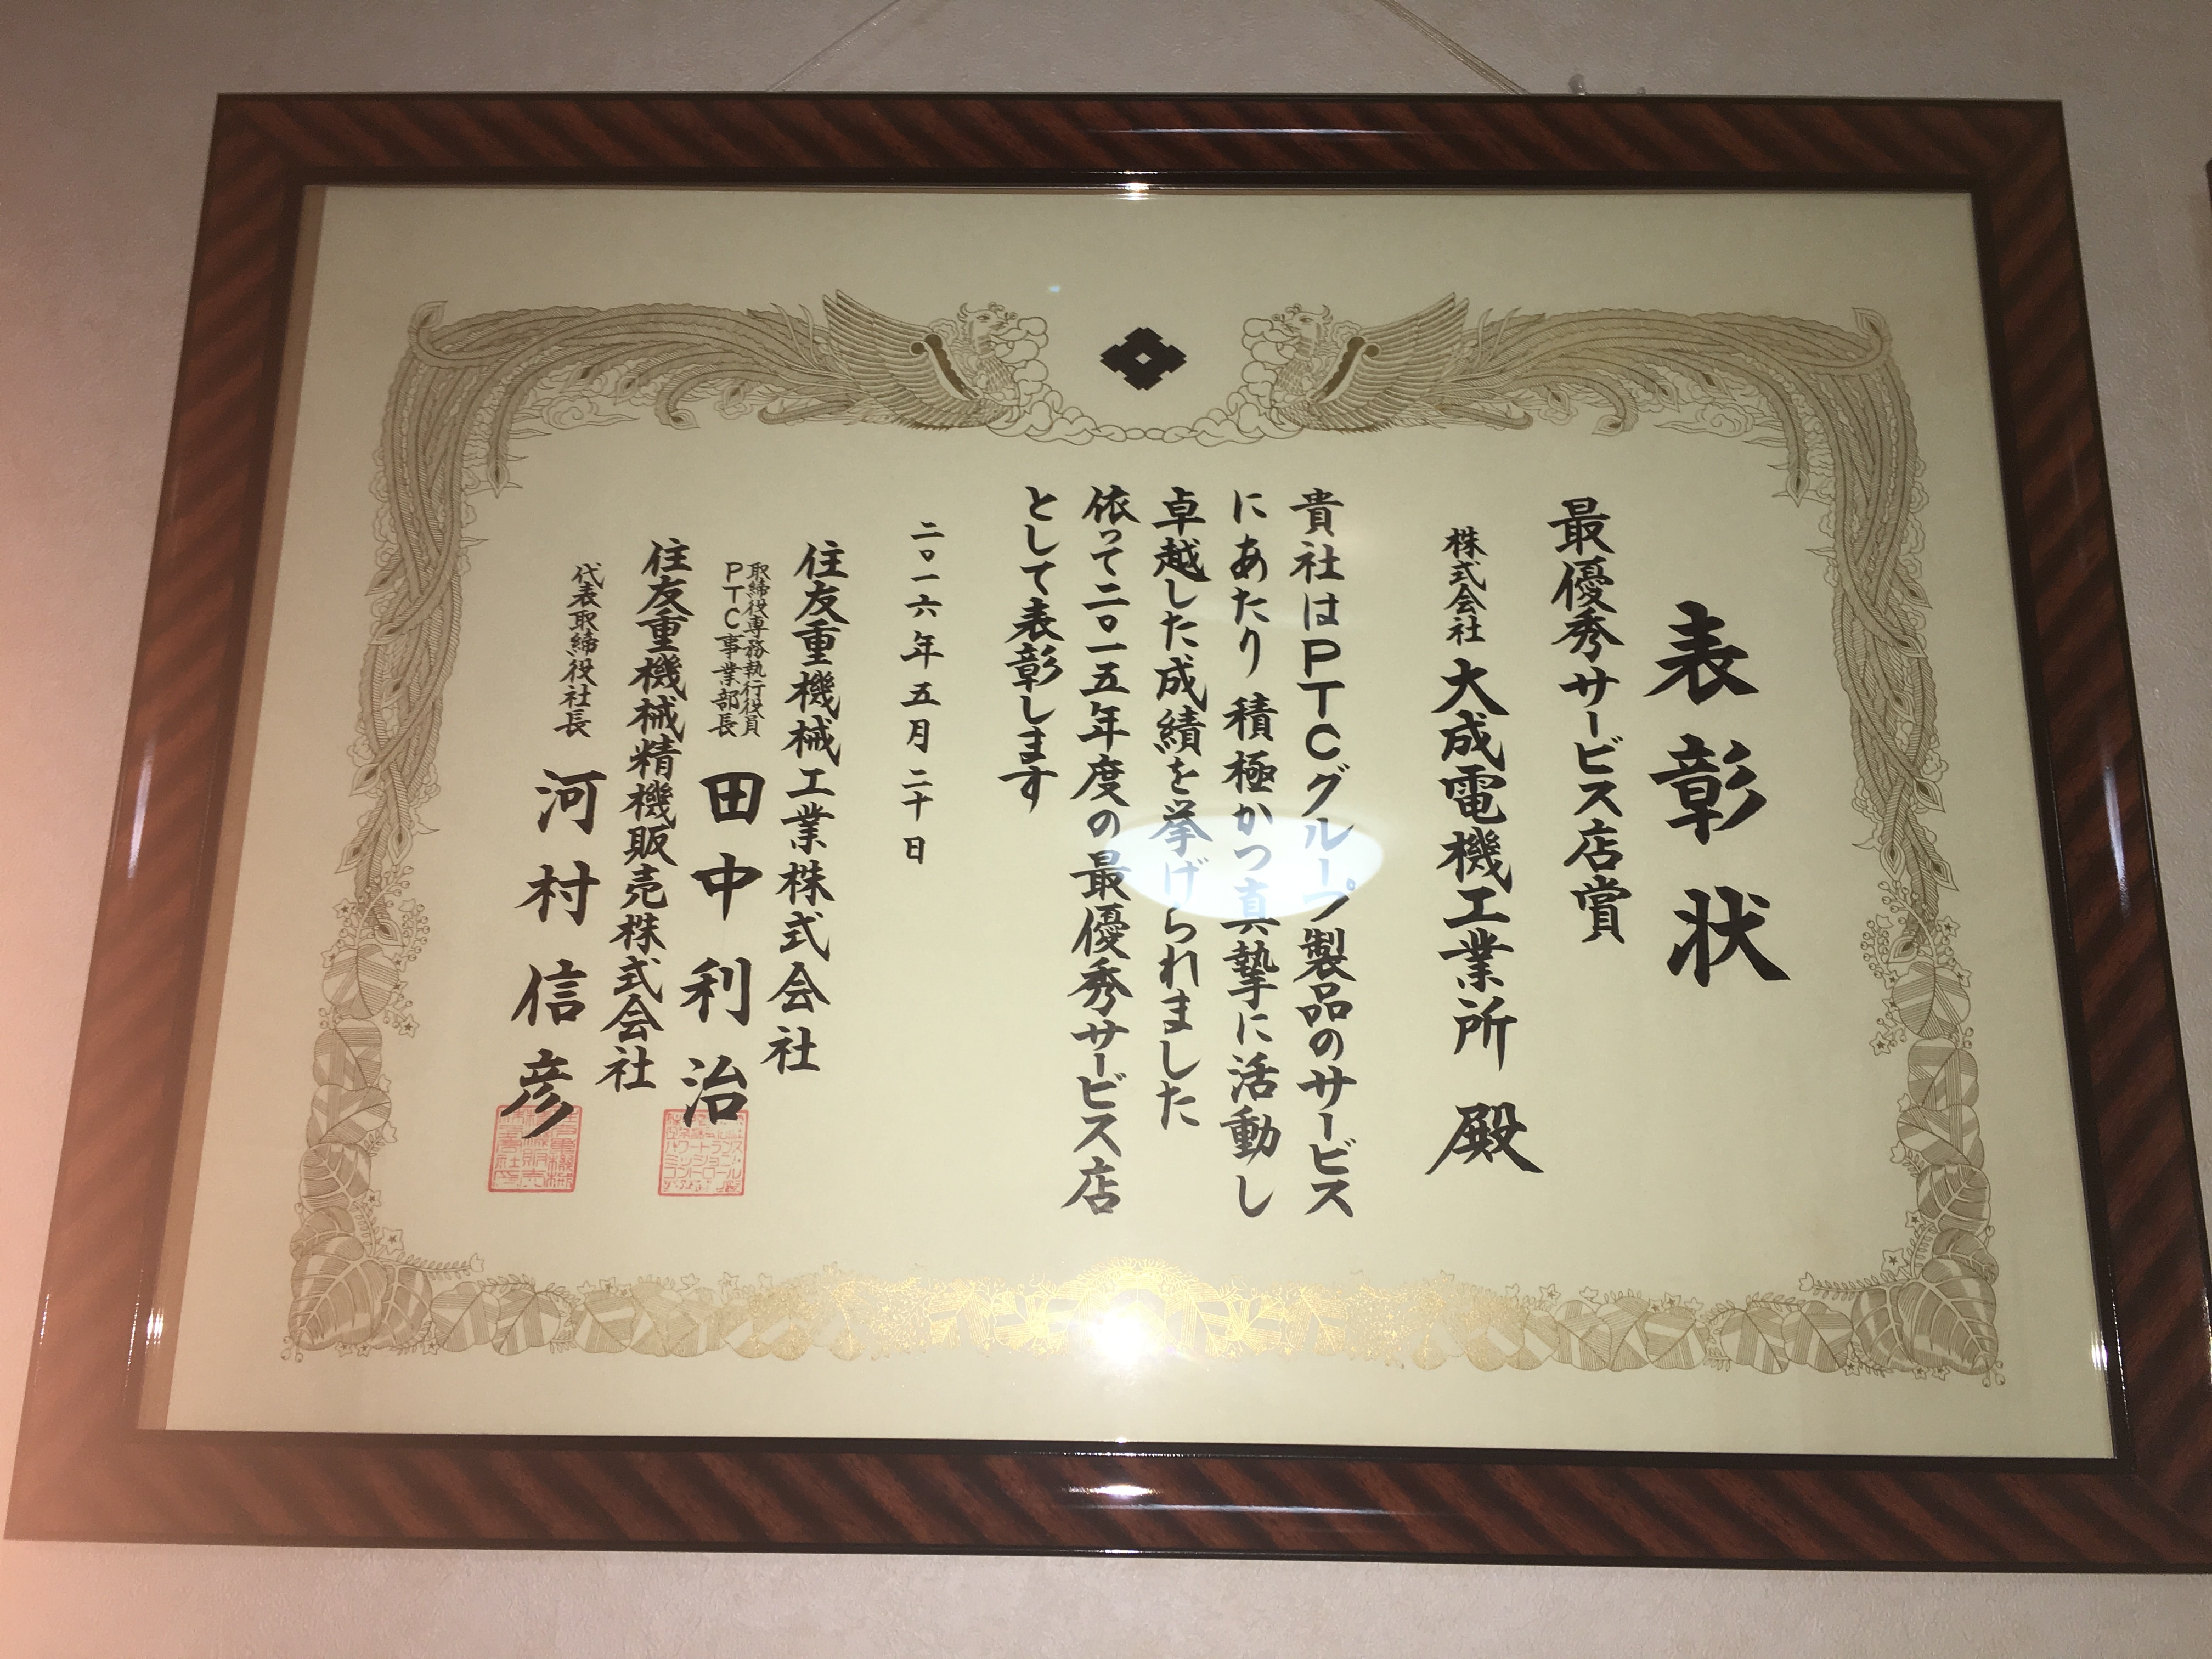 表彰状
最優秀サービス店賞
株式会社 大成電機工業所 殿
貴社はPTCグループ製品のサービス
にあたり 積極かつ真摯に活動し
卓越した成績を挙げられました
依って二〇一五年度の最優秀サービス店
として表彰します
二〇一六年五月二十日
住友重機械工業株式会社
取締役専務執行役員
PTC事業部長
田中利治
住友重機械精機販売株式会社
代表取締役社長 河村信彦